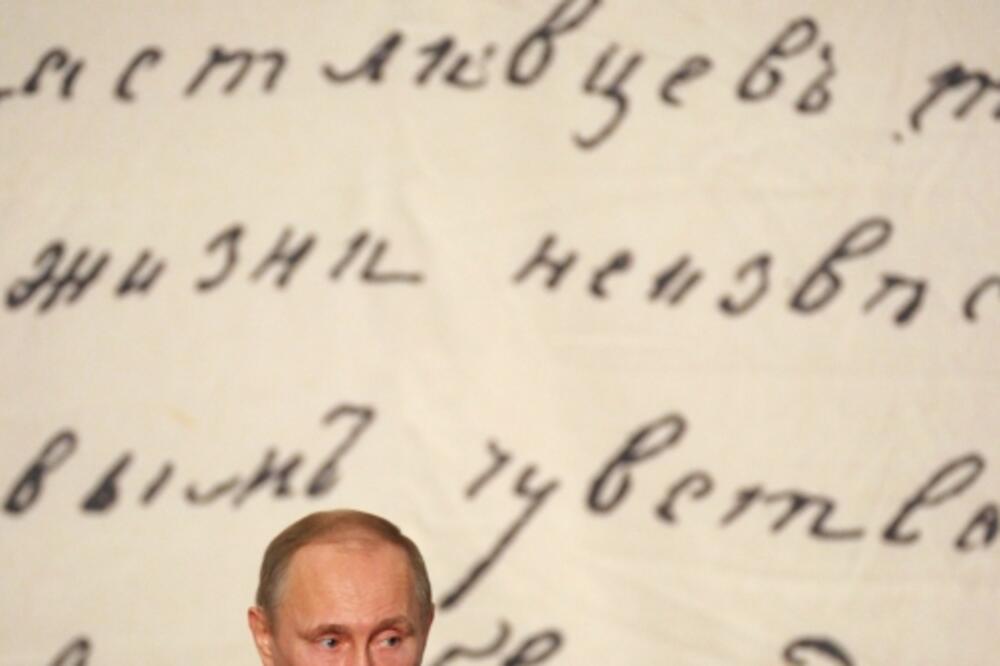 астливцевъ т
жизни неизвѣс
вымъ чувства